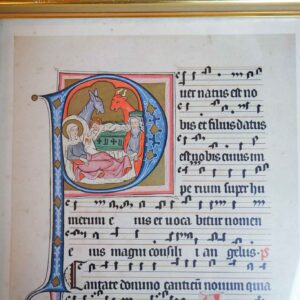 P
uer natus est no
bis et filius datus
est nobis cuius im
perium super hu
merum e ius et uoca bitur nomen
e ius magni consilii i an gelus ps
Cantate domino canticū nouum quia